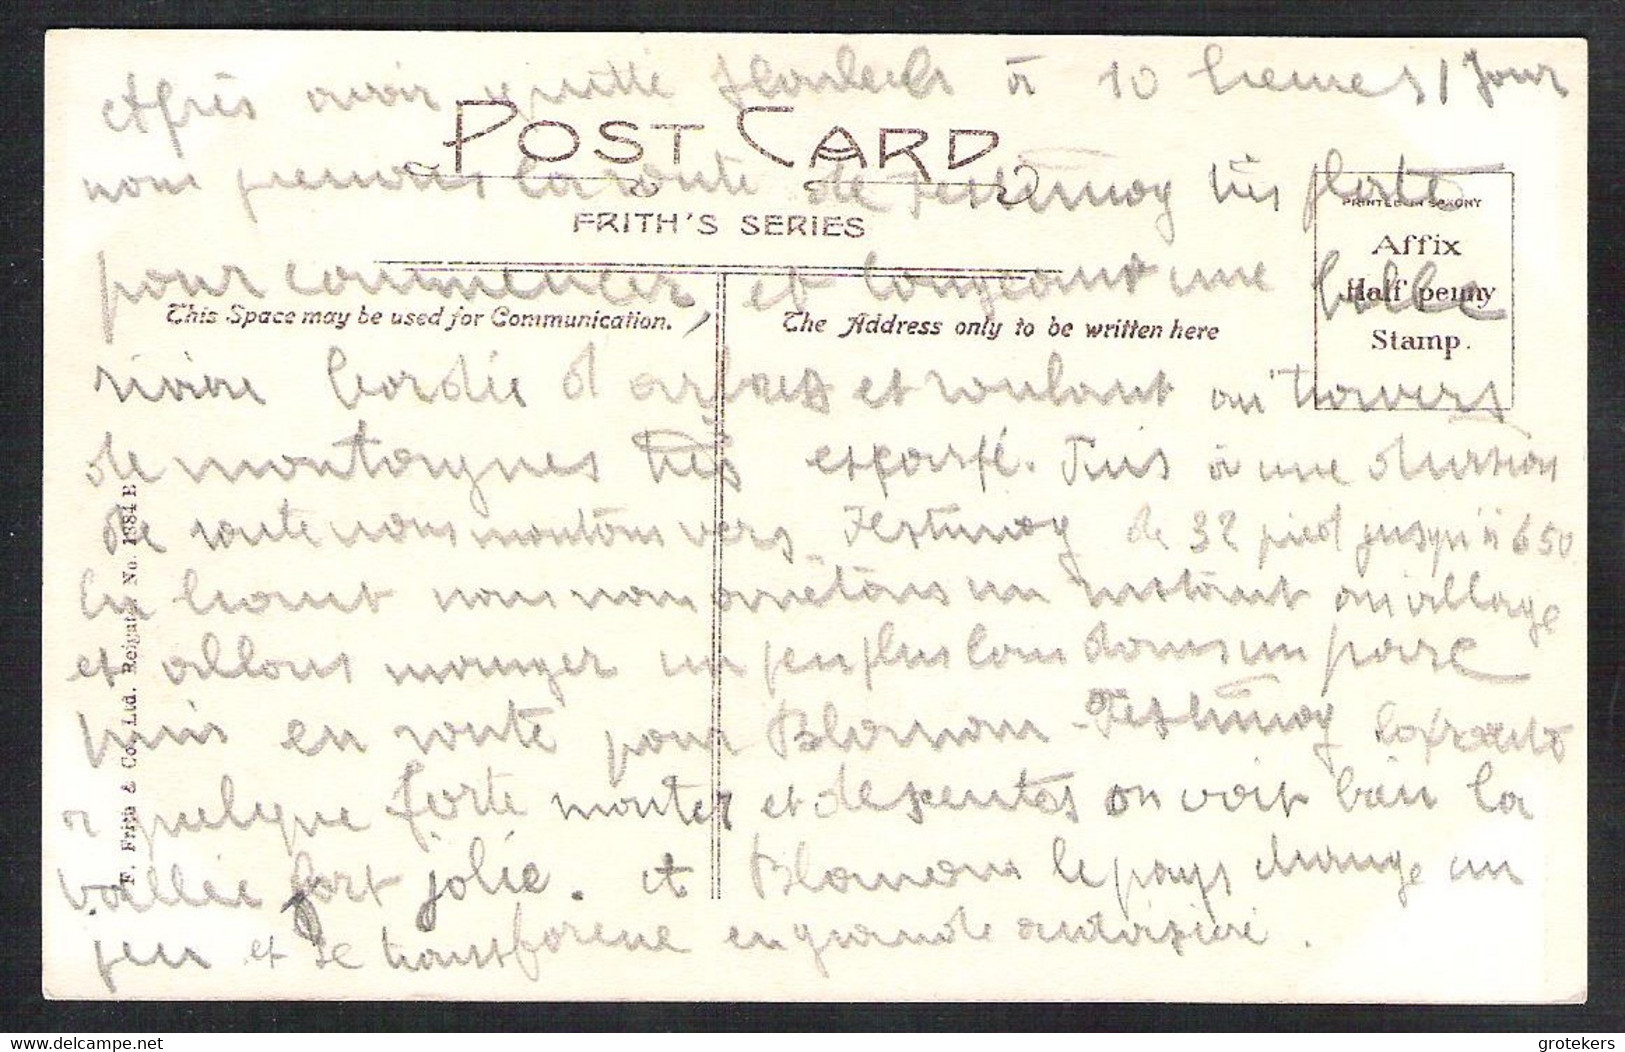 Après avoir quitté à 10 heures 1 Jour
POST CARD
nous prenons la route de Festiniog très plate
PRINTED IN SAXONY
FRITH'S SERIES
Affix
Half penny
Stamp.
pour commencer, et longeant une belle
This Space may be used for Communication.
The Address only to be written here
rivière bordée d'arbres et roulant au travers
de montagnes très espacé. Puis à une
de route nous montons vers Festiniog de 32 pied jusqu'à 650
En haut nous nous arrêtons un instant au village
et allons manger un peu plus loin dans un parc
puis en route pour Festiniog
a quelque forte monter et descentes on voit bien la
vallée fort jolie. et le pays change un
peu et se transforme en grande
F. Frith & Co., Ltd. Reigate. No. 1384 B
grotekers